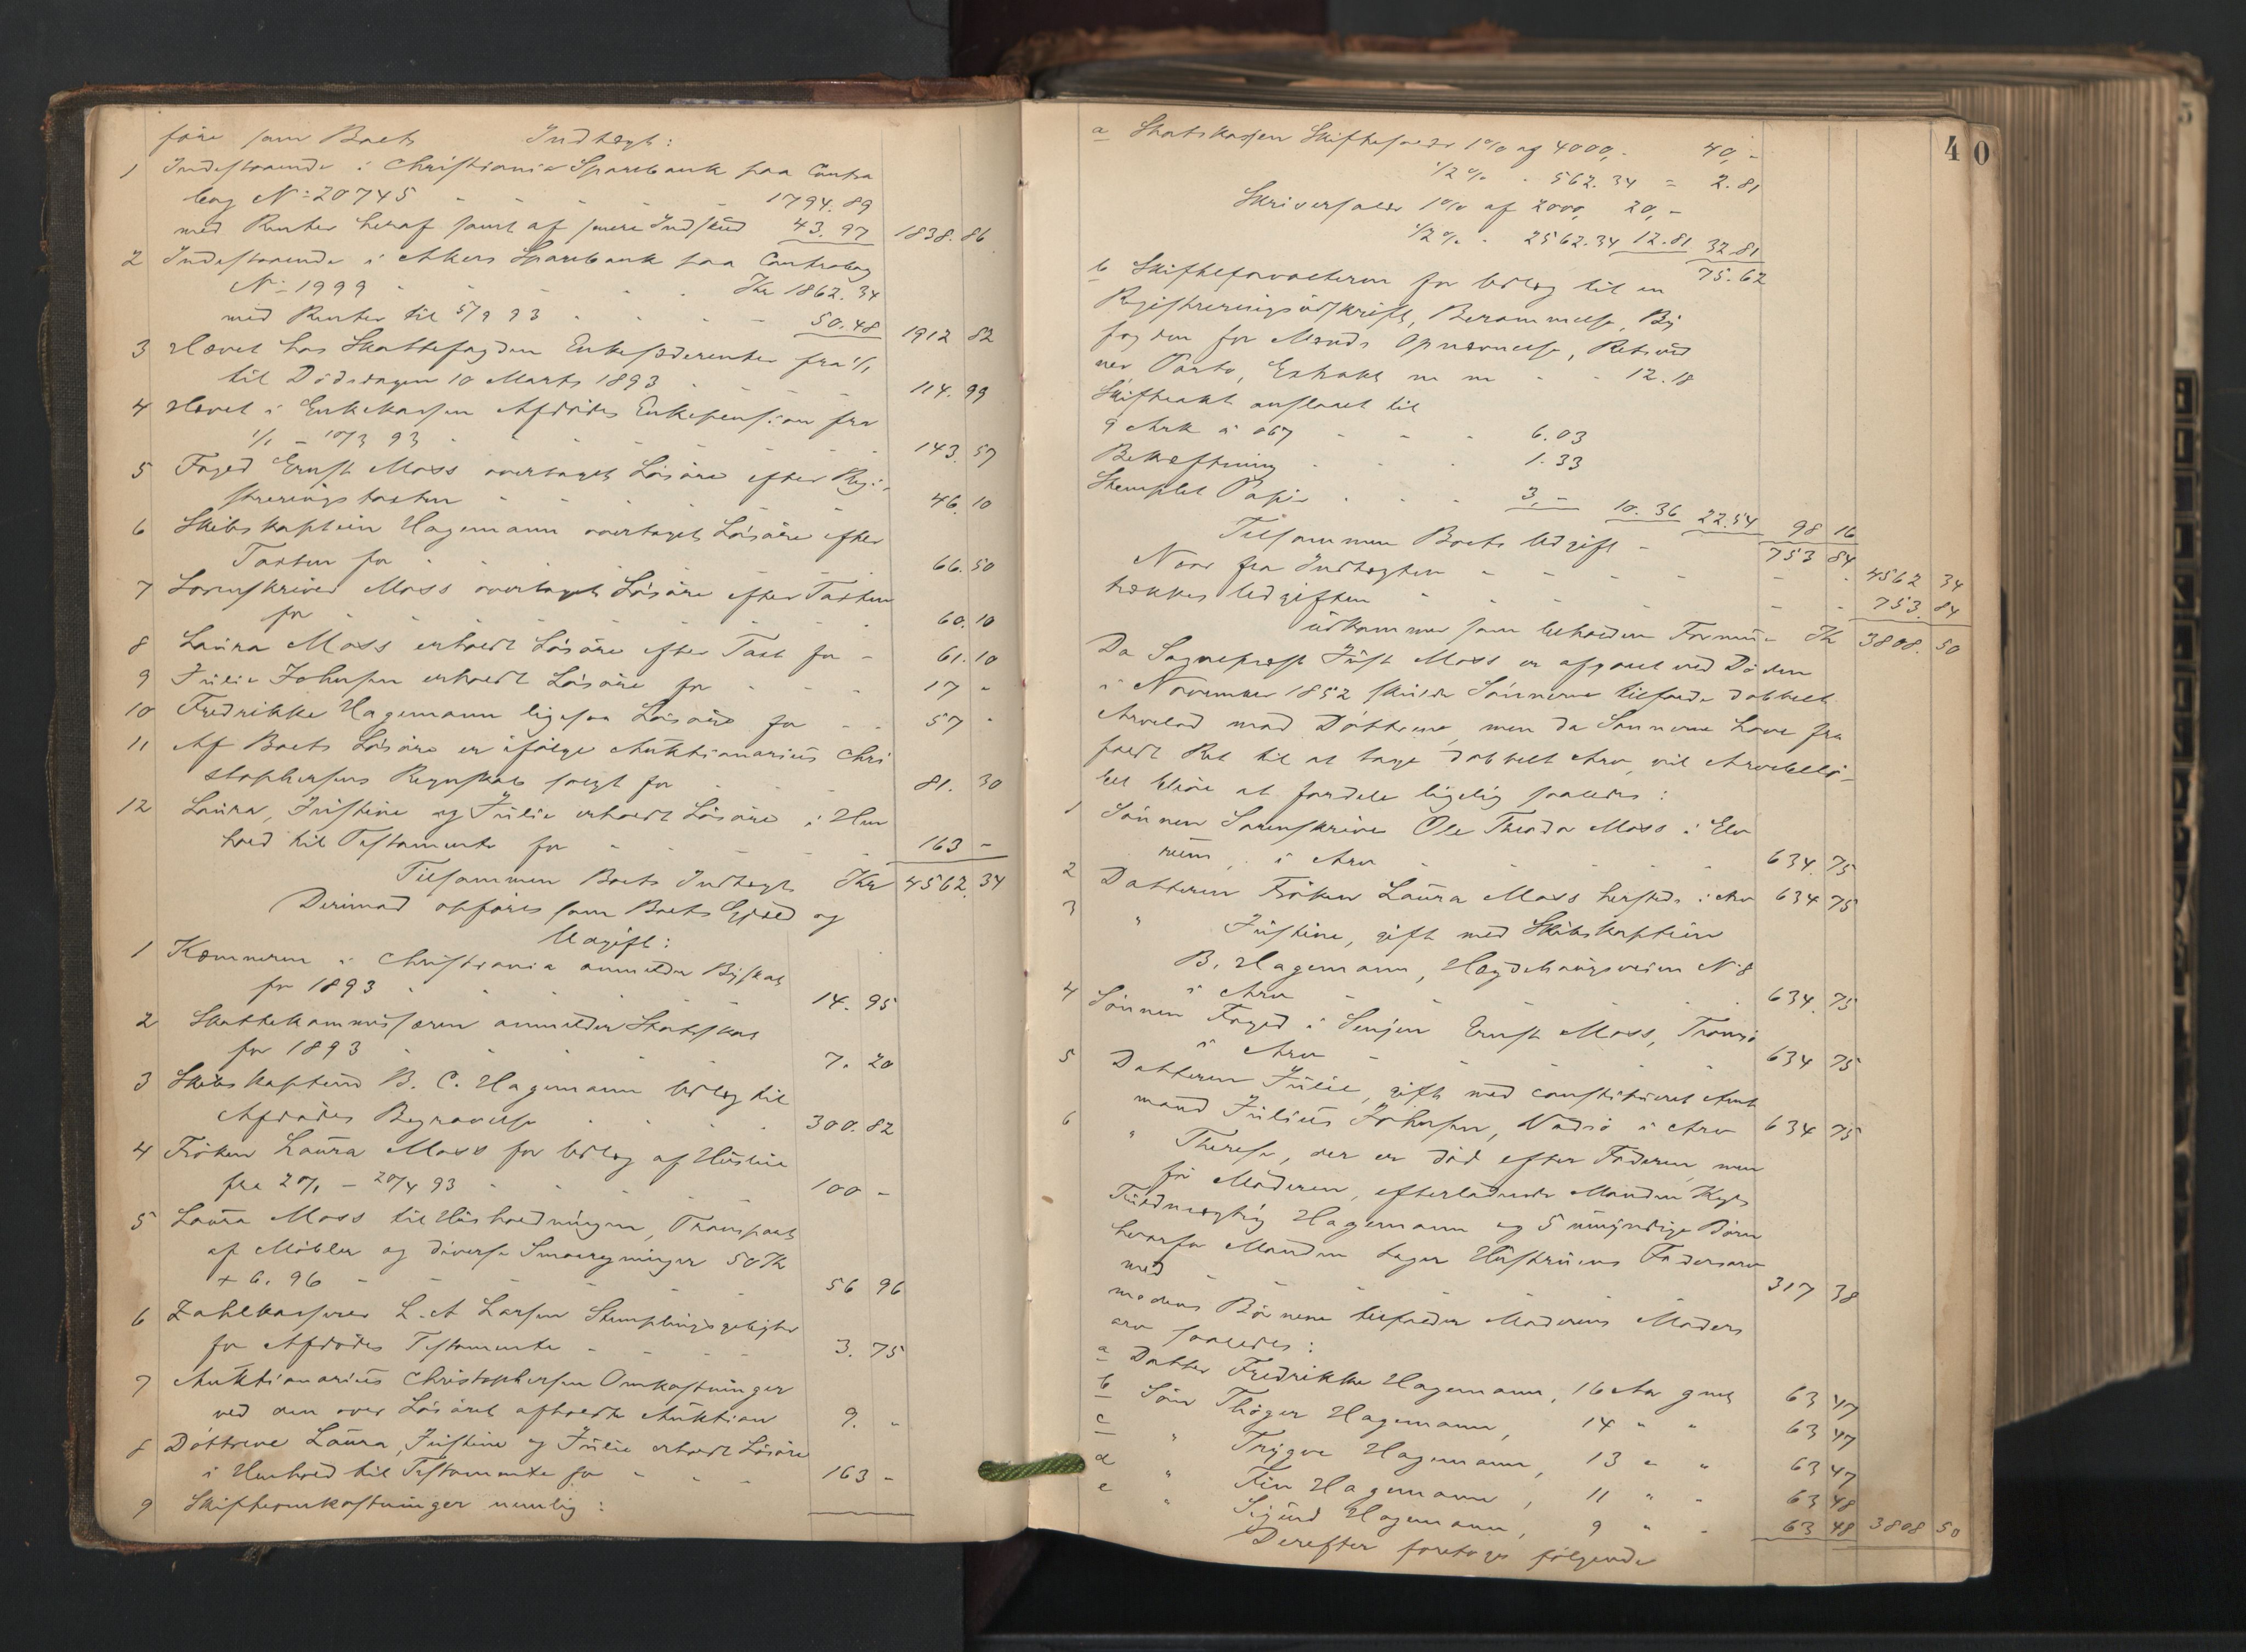 føre som Boets Indtægt:
1 Indestaaende i Christiania Sparebank paa Contra
bog No 20745 - - - - 1794.89
med Renter heraf samt af senere Indskud 43.97 1838.86
2 Indestaaende i Akers Sparebank paa Contrabog
No 1999 - - - Kr 1862.34
med Renter til 5/9 93 - - - 50.48 1912 82
3 Hævet hos Skattefogden Enkesæderenter fra 1/1
til Dødsdagen 10 Marts 1893 - - - 114.99
4 Hævet i Enkekassen Afdødes Enkepension fra
1/1 - 10/3 93 - - - 143.57
5 Foged Ernst Moss overtaget Løsøre efter Regi-
streringstaxten - - - 46.10
6 Skibskaptein Hagemann overtaget Løsøre efter
Taxten for - - - 66.50
7 Sorenskriver Moss overtaget Løsøre efter Taxten
for - - - 60.10
8 Laura Moss erholdt Løsøre efter Taxt for - 61.10
9 Julie Johnsen erholdt Løsøre for - - - 17 -
10 Fredrikke Hagemann ligesaa Løsøre for - - 57 -
11 Af Boets Løsøre er ifølge Auktionarius Chri
stophersens Regnskab solgt for - - - 81.30
12 Laura, Justine og Julie erholdt Løsøre i Hen
hold til Testamente for - - - 163 -
Tilsammen Boets Indtægt Kr 4562.34
Derimod opføres som Boets Gjæld og
Udgift:
1 Kæmneren i Christiania anmelder Byskat
for 1893 - - - 14.95
2 Skattekommissæren anmelder Statsskat
for 1893 - - - 7.20
3 Skibskaptein B. C. Hagemann Udlæg til
Afdødes Begravelse - - - 300.82
4 Frøken Laura Moss for Udlæg af Husleie
fra 20/1 - 20/4 93 - - - 100 -
5 Laura Moss til Husholdningen, Transport
af Møbler og diverse Smaaregninger 50 Kr
+ 6.96 - - - 56 96
6 Zahlkasserer L. A Larsen Stemplingsgebyhr
for Afdødes Testamente - - - 3.75
7 Auktionarius Christophersen Omkostninger
ved den over Løsøret afholdte Auktion 9. -
8 Døttrene Laura, Justine og Julie erholdt Løsøre
i Henhold til Testamente for - - - 163 -
9 Skifteomkostninger nemlig:
40
a Statskassen Skiftesalær 1% af 4000,- 40,-
1/2% - 562.34 = 2.81
Skriversalær 1% af 2000, 20,-
1/2% - 2562.34 12.81 32.81
75.62
b Skifteforvalteren for Udlæg til en
Registreringsudskrift, Berammelse, By
fogden for Mænds Opnævnelse, Retsvid
ner Porto, Extrakt m m - - 12.18
Skifteakt anslaaet til
9 Ark à 067 - - - 6.03
Bekræftning - - - 1.33
Stemplet Papir - - - 3,- 10.36 22.54 98 16
Tilsammen Boets Udgift - 753 84
Naar fra Indtægten - - - 4562 34
trækkes Udgiften - - - 753.84
udkommer som beholden Formue Kr 3808.50
Da Sogneprest Just Moss er afgaaet ved Døden
i November 1852 skulde Sønnerne tilfalde dobbelt
Arvelod mod Døttrene, men da Sønnerne have fra
faldt Ret til at tage dobbelt Arv, vil Arvebelø-
bet blive at fordele ligelig saaledes:
1 Sønnen Sorenskriver Ole Theodor Moss i Elve
rum, i Arv - - - 634.75
2 Datteren Frøken Laura Moss hersteds i Arv 634 75
3 " Justine, gift med Skibskaptein
B. Hagemann, Hægdehaugsveien No 8
i Arv - - - 634.75
4 Sønnen Foged i Senjen Ernst Moss, Tromsø
i Arv - - - 634 75
5 Datteren Julie, gift med constitueret Amt
mand Julius Johnsen, Vadsø i Arv 634 75
6 " Therese, der er død efter Faderen, men
før Moderen, efterladende Manden
Fuldmægtig Hagemann og 5 umyndige Børn
hvorfor Manden tager Hustruens Fædrearv
med - - - 317 38
medens Børnene tilfalder Moderens Moders
arv saaledes:
a Datter Fredrikke Hagemann, 16 Aar gml 63 47
b Søn Thøger Hagemann, 14 " " 63 47
c " Trygve Hagemann, 13 " " 63 47
d " Fin Hagemann, 11 " " 63 48
e " Sigurd Hagemann, 9 " " 63 48 3808 50
Derefter foretoges følgende